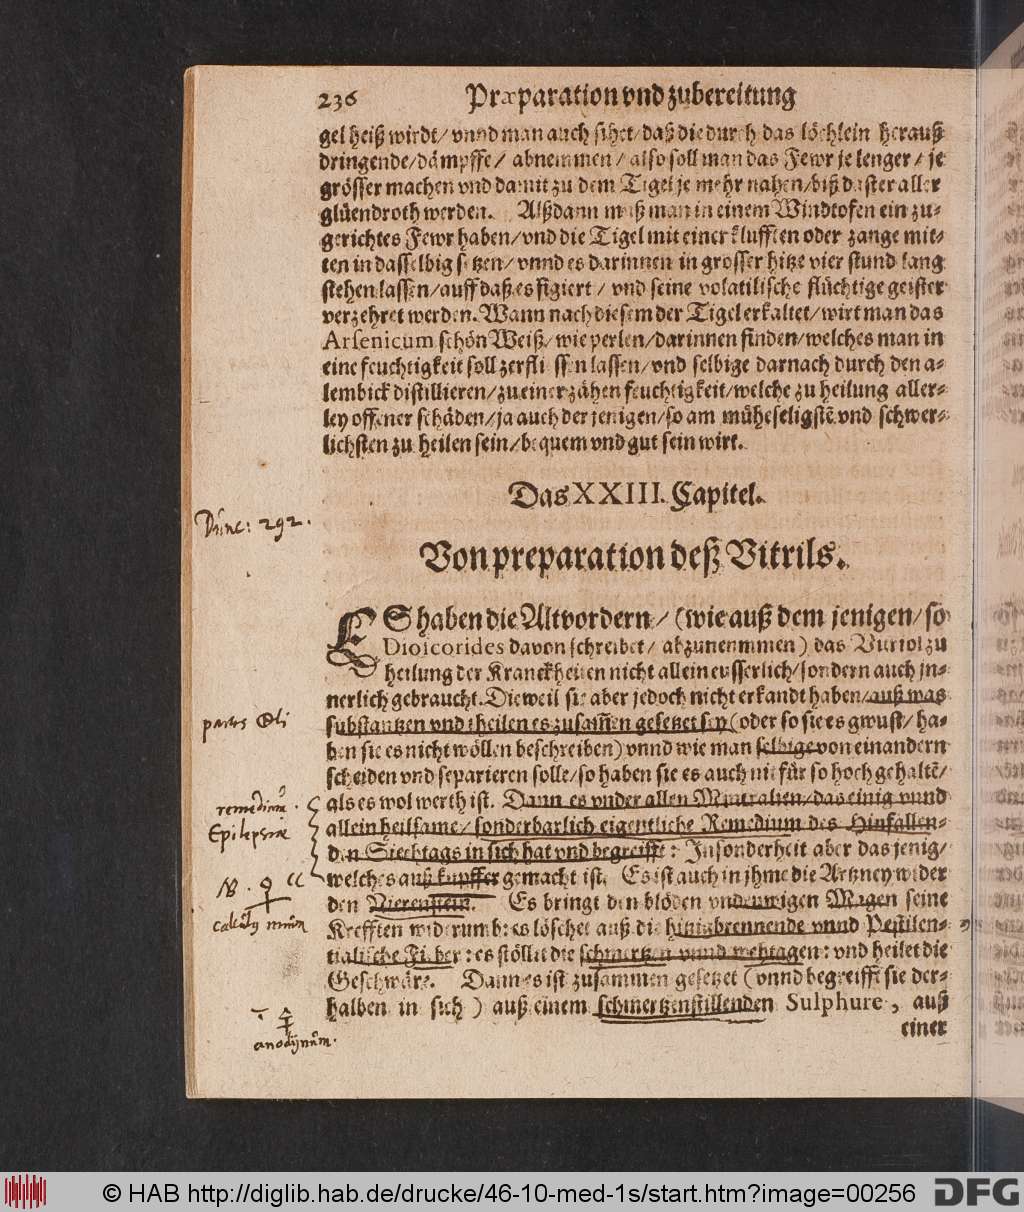 236 Præparation vnd zubereitung
gel heiß wirdt/ vnnd man auch sihet/ daß die durch das löchlein herauß
dringende/ dämpffe/ abnemmen/ also soll man das Fewr je lenger/ je
grösser machen vnd damit zu dem Tigel je mehr nahen/ biß daster aller
glüendroth werden. Alßdann muß man in einem Windtofen ein zu-
gerichtes Fewr haben/ vnd die Tigel mit einer klufften oder zange mit-
ten in dasselbig setzen/ vnnd es darinnen in grosser hitze vier stund lang
stehen lassen/ auff daß es figiert/ vnd seine volatilische flüchtige geister
verzehret werden. Wann nach diesem der Tigel erkaltet/ wirt man das
Arsenicum schön Weiß/ wie perlen/ darinnen finden/ welches man in
eine feuchtigkeit soll zerfliessen lassen/ vnd selbige darnach durch den a-
lembick distillieren/ zu einer zähen feuchtigkeit/ welche zu heilung aller-
ley offener schäden/ ja auch der jenigen/ so am müheseligstē vnd schwer-
lichsten zu heilen sein/ bequem vnd gut sein wirt.
Das XXIII. Capitel.
: 292.
Von preparation deß Vitrils.
ES haben die Altvordern/ (wie auß dem jenigen/ so
Dioscorides davon schreibet/ abzunemmen) das Vitriol zu
heilung der Kranckheiten nicht allein eusserlich/ sondern auch jn-
nerlich gebraucht. Dieweil sie aber jedoch nicht erkandt haben/ auß was
substantzen vnd theilen es zusam̄en gesetzet sey (oder so sie es gwust/ ha-
partes Oli
ben sie es nicht wöllen beschreiben) vnnd wie man selbige von einandern
scheiden vnd separieren solle/ so haben sie es auch nit für so hoch gehaltē/
als es wol werth ist. Dann es vnder allen Mineralien/ das einig vnnd
remedium.
allein heilsame/ sonderbarlich eigentliche Remedium des Hinfallen-
Epilepsiæ
den Siechtags in sich hat vnd begreifft: Insonderheit aber das jenig/
welches auß kupffer gemacht ist. Es ist auch in jhme die Artzney wider
NB. ♀
den Nierenstein. Es bringt den blöden vndeuwigen Magen seine
Krefften widerumb: es löschet auß die hitzigbrennende vnnd Pestilen-
tialische Fieber: es stillet die schmertzen vnnd wehtagen: vnd heilet die
Geschwäre. Dann es ist zusammen gesetzet (vnnd begreifft sie der-
halben in sich) auß einem schmertzenstillenden Sulphure, auß
🜍
anodynum.
einer
© HAB http://diglib.hab.de/drucke/46-10-med-1s/start.htm?image=00256 DFG